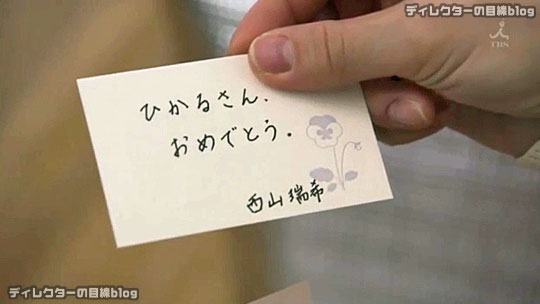 ディレクターの目線blog
TBS
ひかるさん、
おめでとう。
西山瑞希
ディレクターの目線blog